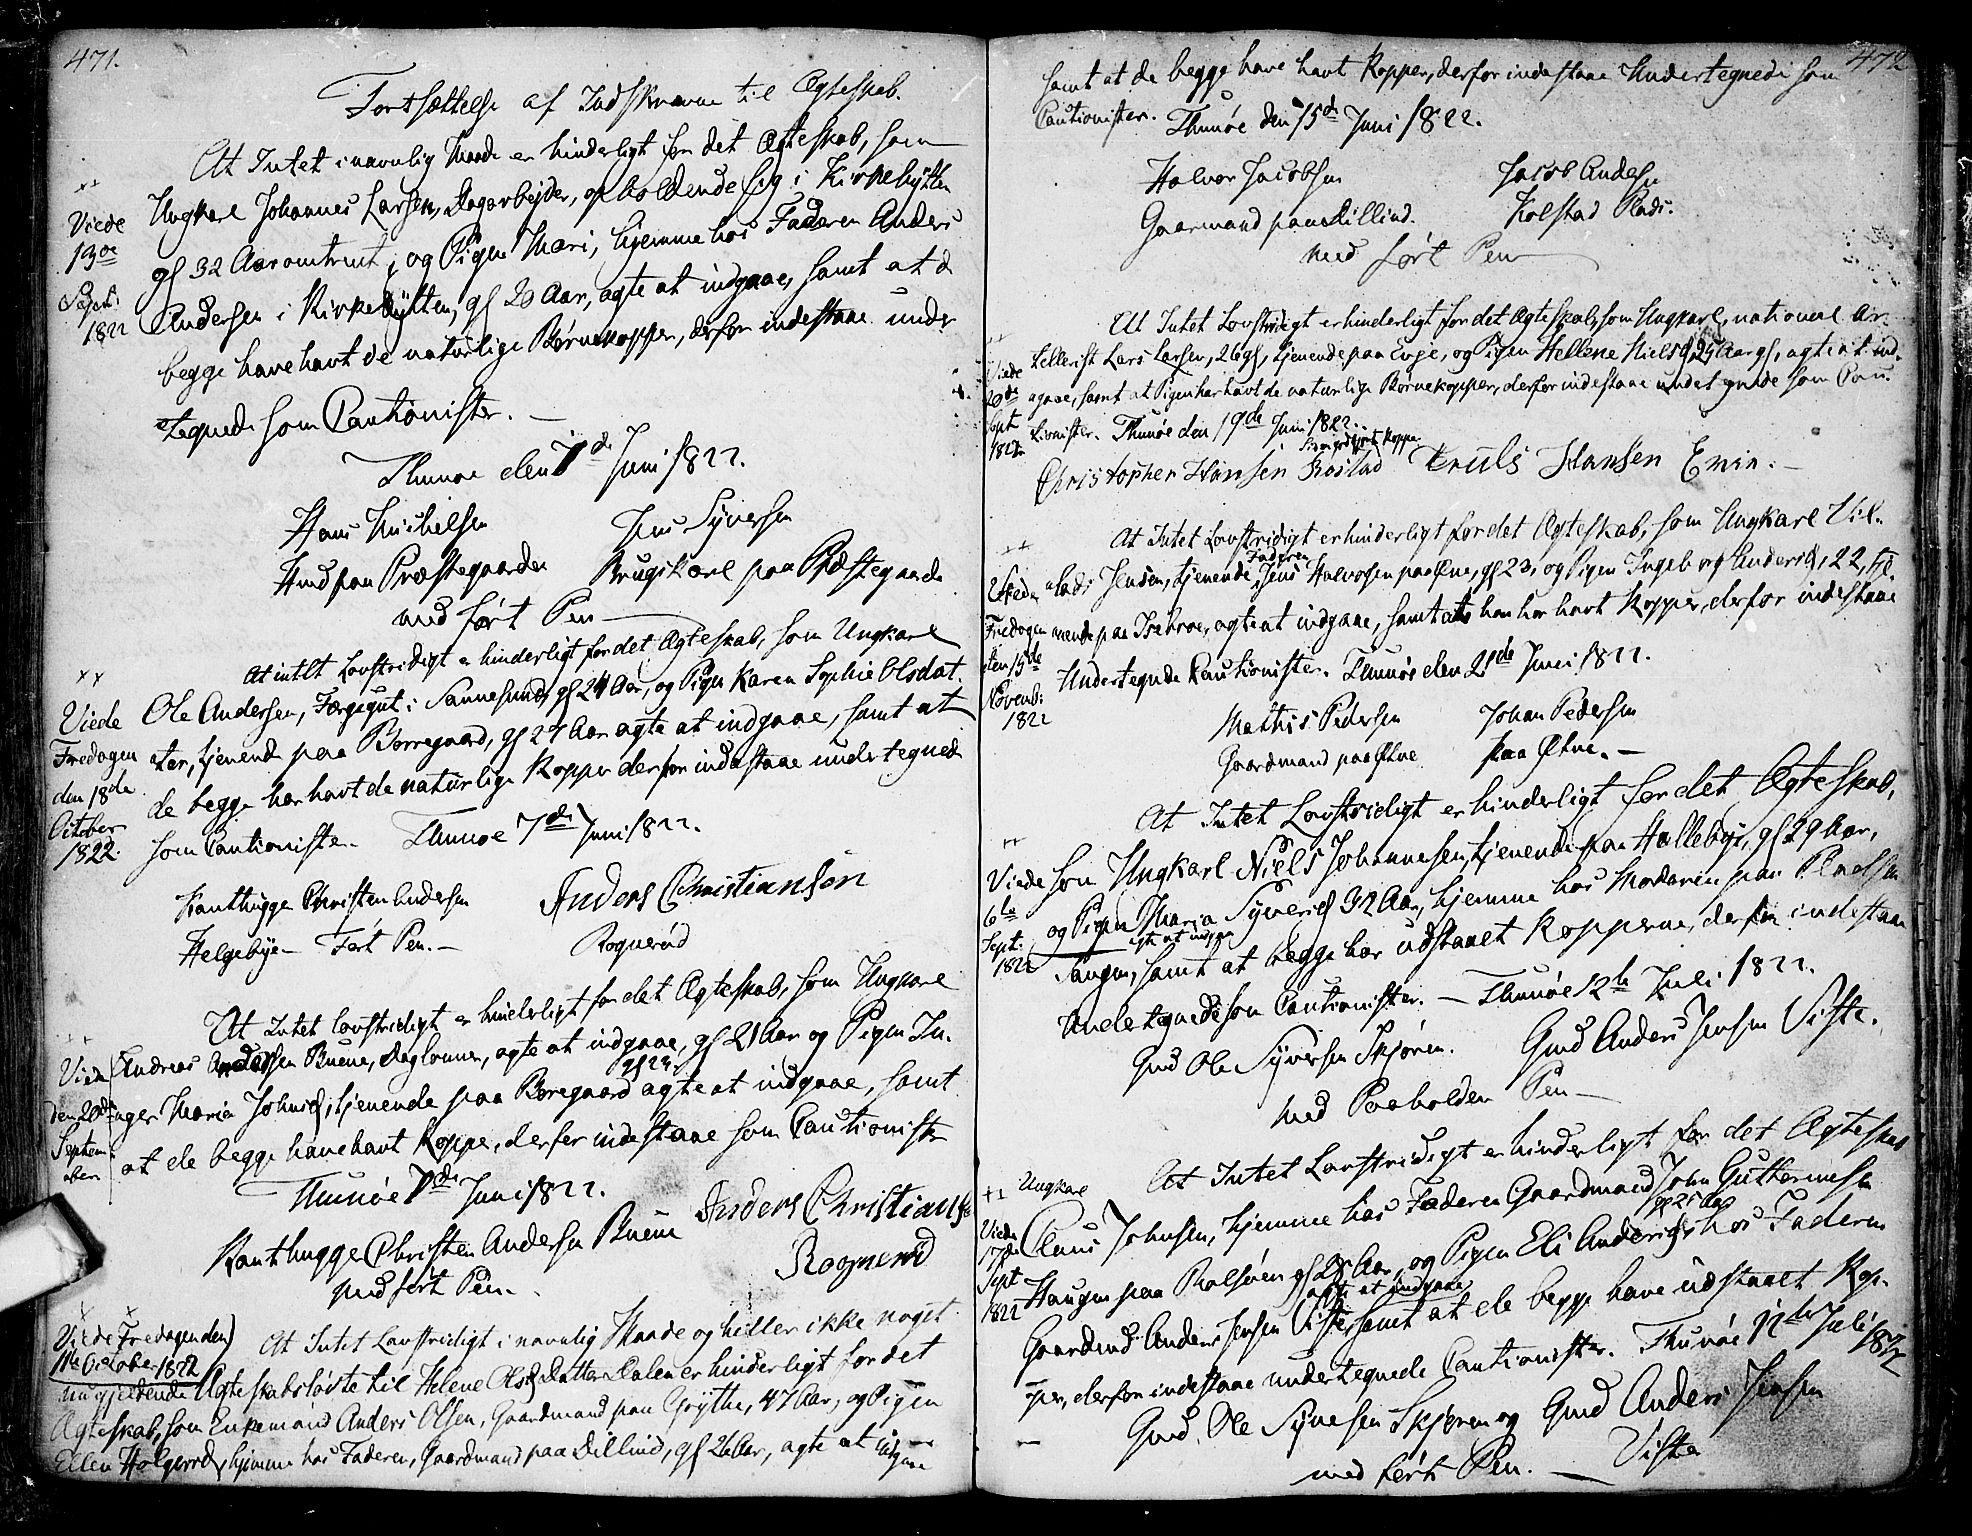 471.
Fortsættelse af Indskrevne til Ægteskab.
At Intet i navnlig Maade er hinderligt for det Ægteskab, som
Ungkarl Johannes Larsen, Dagarbejder, opholdende sig i Kirkehytten
gl 32 Aar omtrent, og Pigen Mari, hjemme hos Faderen Anders
Andersen i Kirkehytten, gl 20 Aar, agte at indgaae, samt at de
begge have havt de naturlige Børnekopper, derfor indestaae under
tegnede som Cautionister. —
Viede
13de
Sept:
1822
Thunøe den 7de Juni 1822.
Hans Michelsen Jens Syversen
Hmd paa Præstegaarden Brugskarl paa Præstegaarde
med ført Pen —
At intet Lovstridigt er hinderligt for det Ægteskab, som Ungkarl
Ole Andersen, Færgegut i Sannesund, gl 24 Aar, og Pigen Karen Sophie Olsdat-
ter, tjenende paa Borregaard, gl 27 Aar agte at indgaae, samt at
de begge har havt de naturlige Kopper derfor indestaae undertegnede
som Cautionister. Thunøe 7de Juni 1822.
Viede
Fredagen
den 18de
October
1822.
Kanthugge Christen Andersen Anders Christiansøn
Helgebye — Ført Pen. — Rognerød
At Intet lovstridigt er hinderligt for det Ægteskab, som Ungkarl
Andreas Andersen Buene, Daglønner, agte at indgaae, gl 21 Aar og Pigen In-
gl 24
ger Maria Johnsd, tjenende paa Boregaard agte at indgaae, samt
at de begge have havt Koppe, derfor indestaae som Cautionister
Viede
den 20de
Septem-
ber
Thunøe 7de Juni 1822.
Kanthugge Christen Andersen Buene Anders Christians
med ført Pen. Rognerød
Viede Fredagen den
11te October 1822
At Intet Lovstridigt i navnlig Maade og heller ikke noget
nugjeldende Ægteskabsløvte til Helene Olsd Datter Dalen er hinderligt for det
Ægteskab, som Enkemand Anders Olsen, Gaardmand paa Grythe, 47 Aar, og Pigen
Ellen Holgersd, hjemme hos Faderen, Gaardmand paa Dillind, gl 26 Aar, agte at indgaae
472
samt at de begge have havt Kopper, derfor indestaae Undertegnede som
Cautionister. Thunøe den 15de Juni 1822.
Halvor Jacobsen Jacob Andersen
Gaarmand paa Dillind. Kolstad Plads.
med ført Pen
At Intet Lovstridigt er hinderligt for det Ægteskab, som Ungkarl, national Ar-
tellerist Lars Larsen, 26 gl, tjenende paa Evje, og Pigen Hellene Nielsd, 24 Aar gl, agte at ind-
gaae, samt at Pigen har havt de naturlige Børnekopper, derfor indestaae undertegnede som Cau-
tionister. Thunøe den 19de Juni 1822.
Viede
20de
Sept
1822
Christopher Hansen Bøstad Truls Hansen Enin. —
At Intet Lovstridigt er hinderligt for det Ægteskab, som Ungkarl Vil-
Faderen
lads Jensen, tjenende Jens Halvorsen paa Øtne, gl 23, og Pigen Ingeborg Andersd, 22, tje-
nende paa Isekroe, agte at indgaae, samt at han har havt Kopper, derfor indestaae
Undertegnede Cautionister. Thunøe den 21de Juni 1822.
Viede
Fredagen
den 15de
Novemb:
1822
Mathis Pedersen Johan Pedersen
Gaardmand paa Øtne paa Øtne. —
At Intet Lovstridigt er hinderligt for det Ægteskab,
som Ungkarl Niels Johannesen, tjenende paa Hallebye, gl 29 Aar,
og Pigen Maria Syversd 32 Aar, hjemme hos Moderen paa Pladsen
agte at indgaae
Haugen, samt at begge har udstaaet Kopperne, derfor indestaae
Undertegnede som Cautionister. — Thunøe 12te Juli 1822.
Viede
6te
Sept:
1822
Gmd Ole Syversen Skjøren. Gmd Anders Jensen Viste.
med Paaholden Pen —
At Intet Lovstridigt er hinderligt for det Ægteskab
Ungkarl
Claus Johnsen, hjemme hos Faderen Gaardmand John Guttormsen
gl 25 Aar
Haugen paa Rolsøen gl 28 Aar, og Pigen Eli Andersd, hos Faderen
agte at indgaae
Gaardmd Anders Jensen Viste, samt at de begge have udstaaet Kop-
per, derfor indestaae undertegnede Cautionister. Thunøe 12te Juli 1822
Viede
17de
Sept
1822
Gmd. Ole Syversen Skjøren og Gmd Anders Jensen
med ført Pen. — Viste